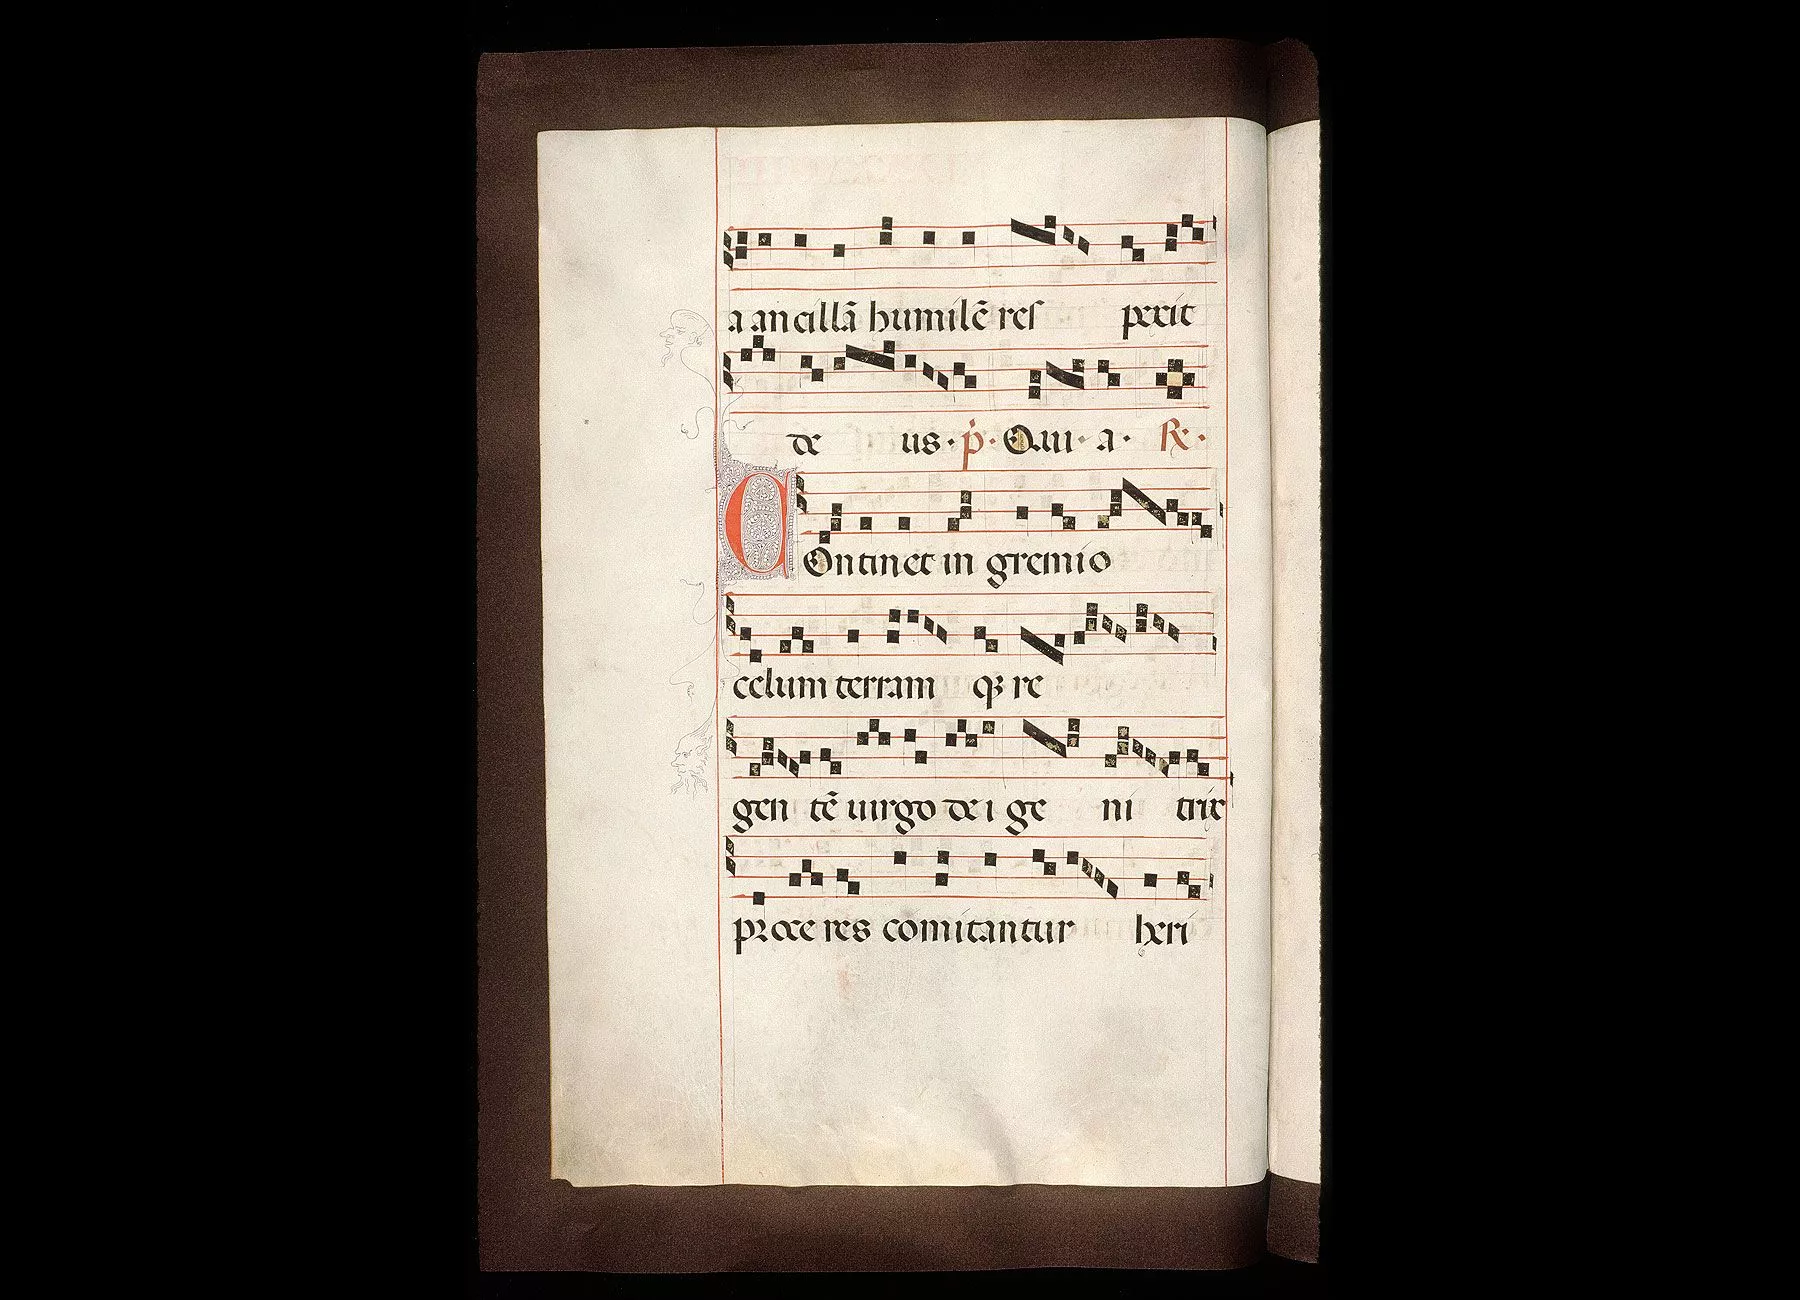 a ancillā humilē res pexit
de us · p̄ · Qui · a · R̃ ·
COntinet in gremio
celum terram qȝ re
gen tē uirgo dei ge ni trix
proce res comitantur heri